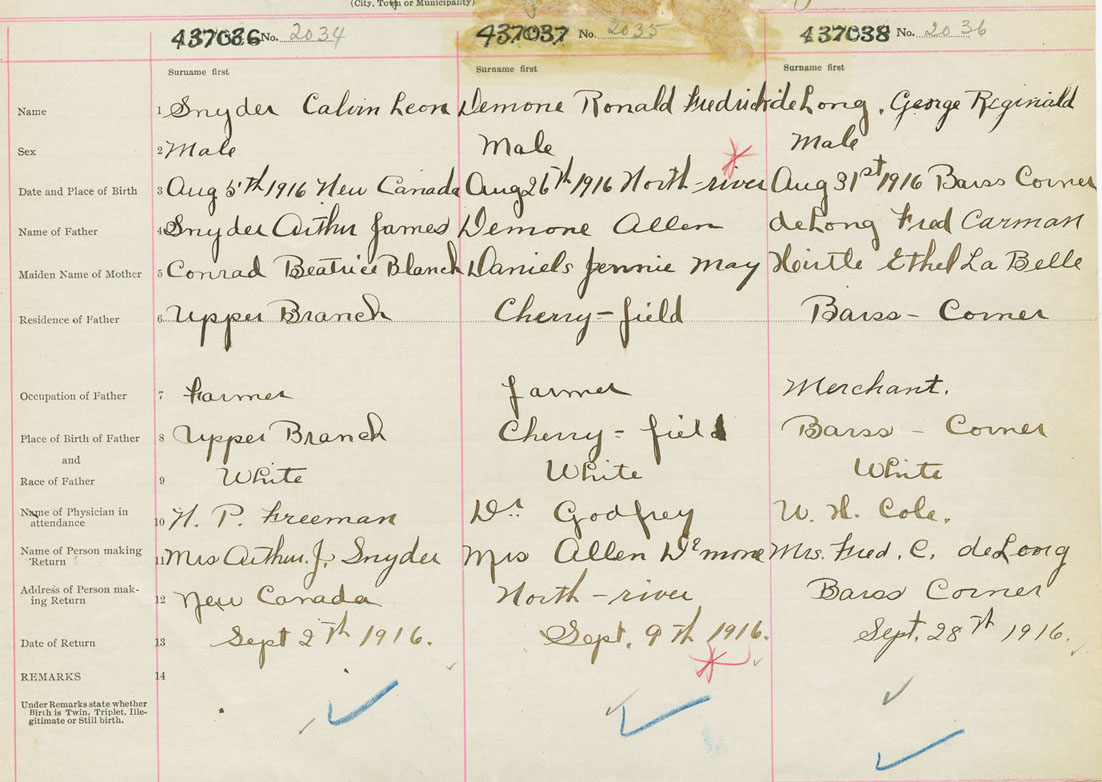 (City, Town or Municipality)
437036 No. 2034 437037 No. 2035 437038 No. 2036
Surname first Surname first Surname first
Name 1 Snyder Calvin Leon Demone Ronald Fredrick deLong, George Reginald
Sex 2 Male Male Male
Date and Place of Birth 3 Aug 5th 1916 New Canada Aug 26th 1916 North-river Aug 31st 1916 Barss Corner
Name of Father 4 Snyder Arthur James Demone Allen deLong Fred Carman
Maiden Name of Mother 5 Conrad Beatrice Blanch Daniels Jennie May Hirtle Ethel La Belle
Residence of Father 6 Upper Branch Cherry-field Barss-Corner
Occupation of Father 7 Farmer farmer Merchant.
Place of Birth of Father 8 Upper Branch Cherry-field Barss-Corner
and
Race of Father 9 White White White
Name of Physician in
attendance 10 H. P. Freeman Dr Godfrey W. H. Cole.
Name of Person making
Return 11 Mrs Arthur. J. Snyder Mrs Allen Demone Mrs. Fred. C. deLong
Address of Person mak-
ing Return 12 New Canada North-river Barss Corner
Date of Return 13 Sept 2th 1916. Sept. 9th 1916. Sept. 28th 1916.
REMARKS 14
Under Remarks state whether
Birth is Twin, Triplet, Ille-
gitimate or Still birth.